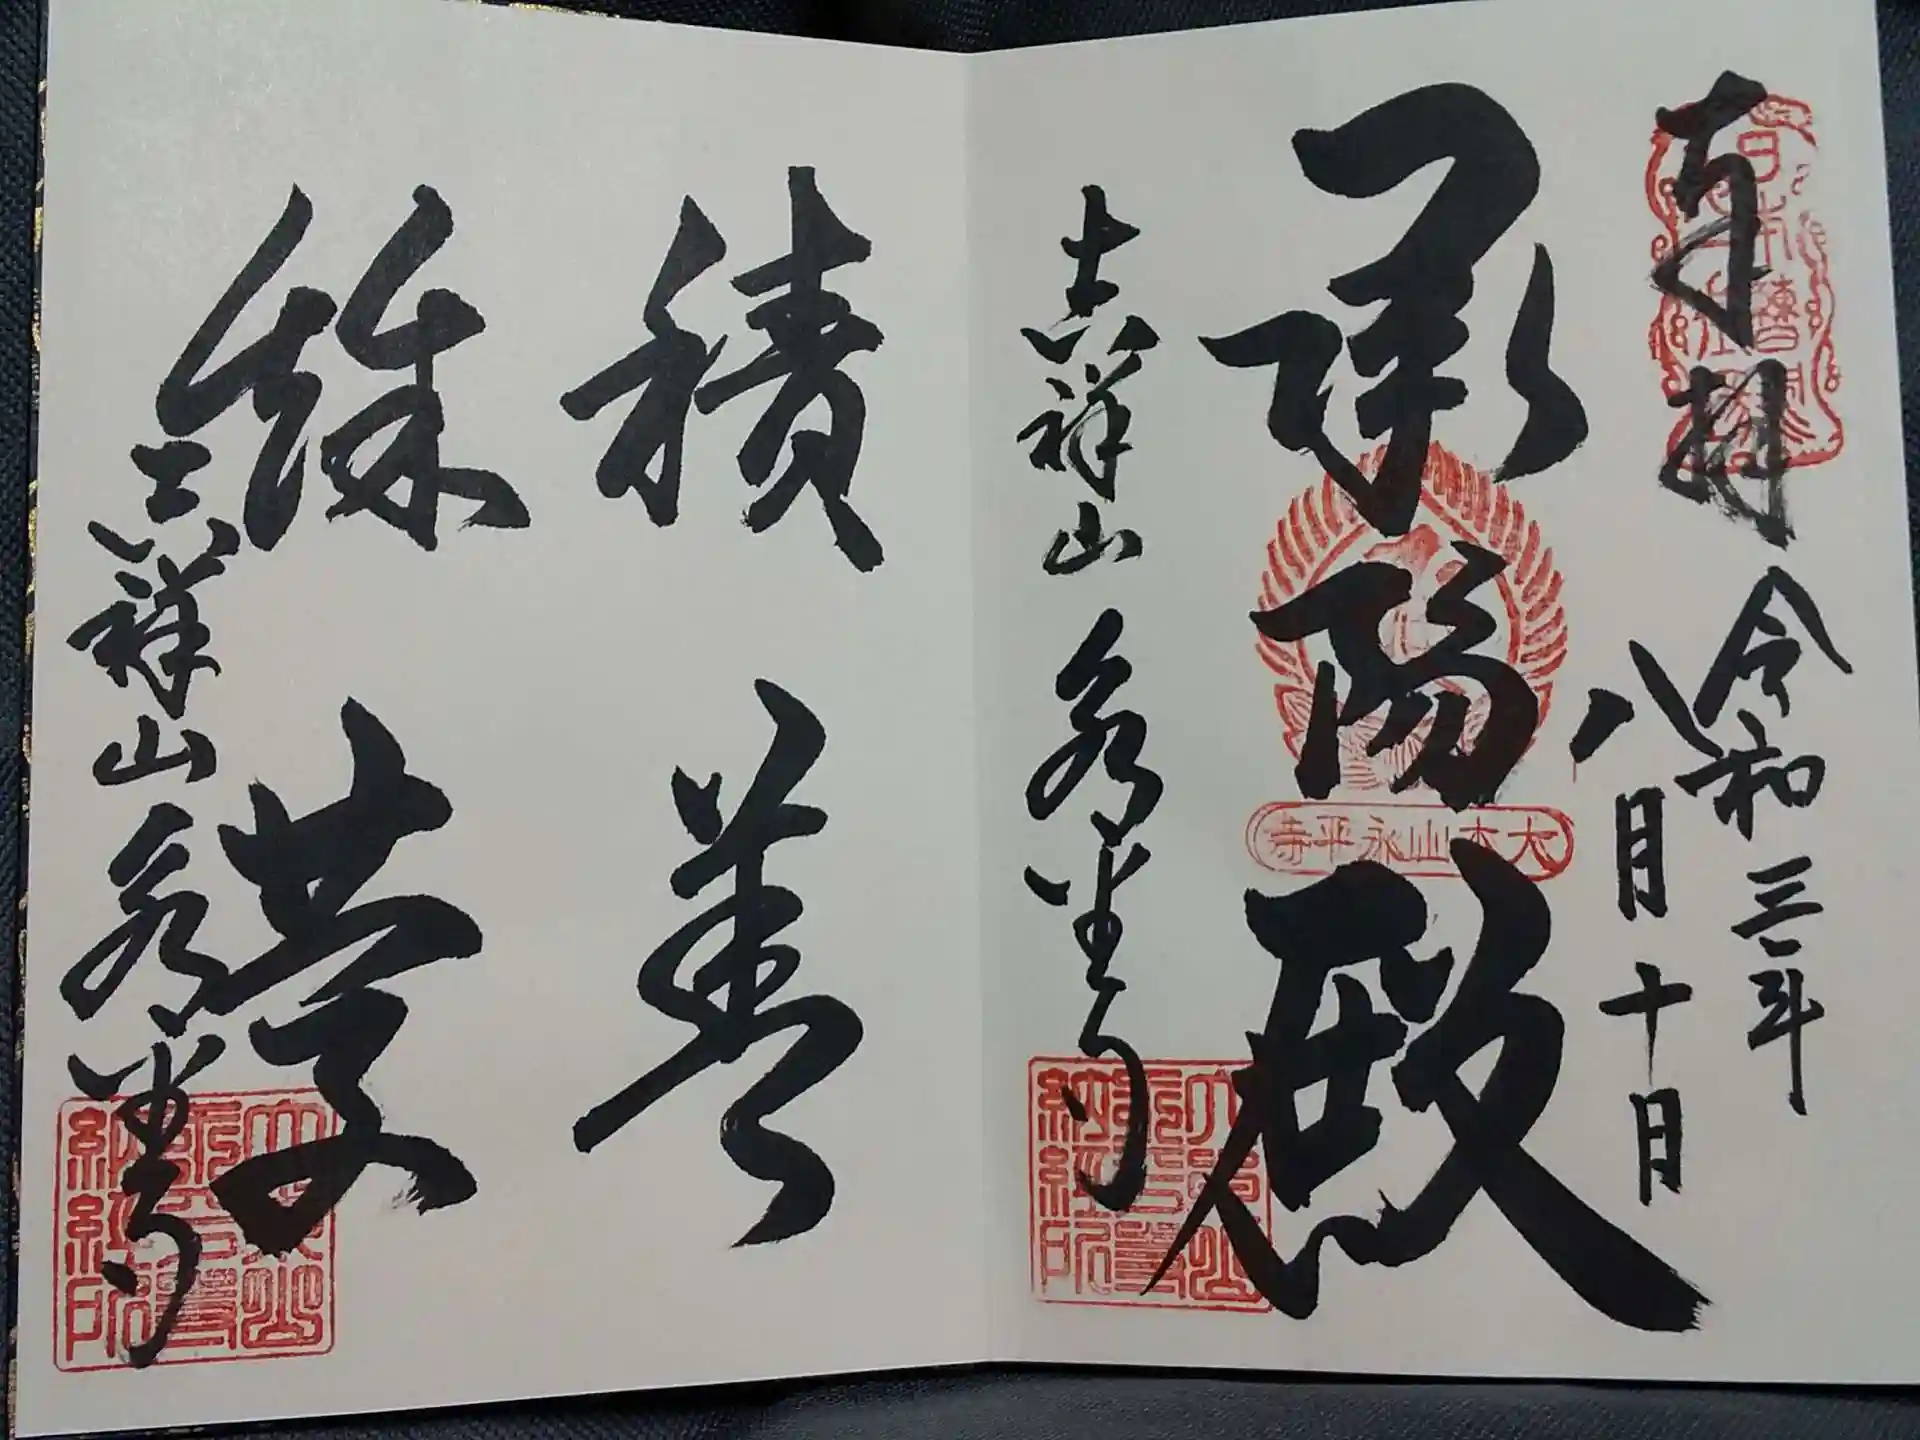 奉拝
令和三年
八月十日
承陽殿
大本山永平寺
吉祥山永平寺
積善
餘慶
吉祥山永平寺